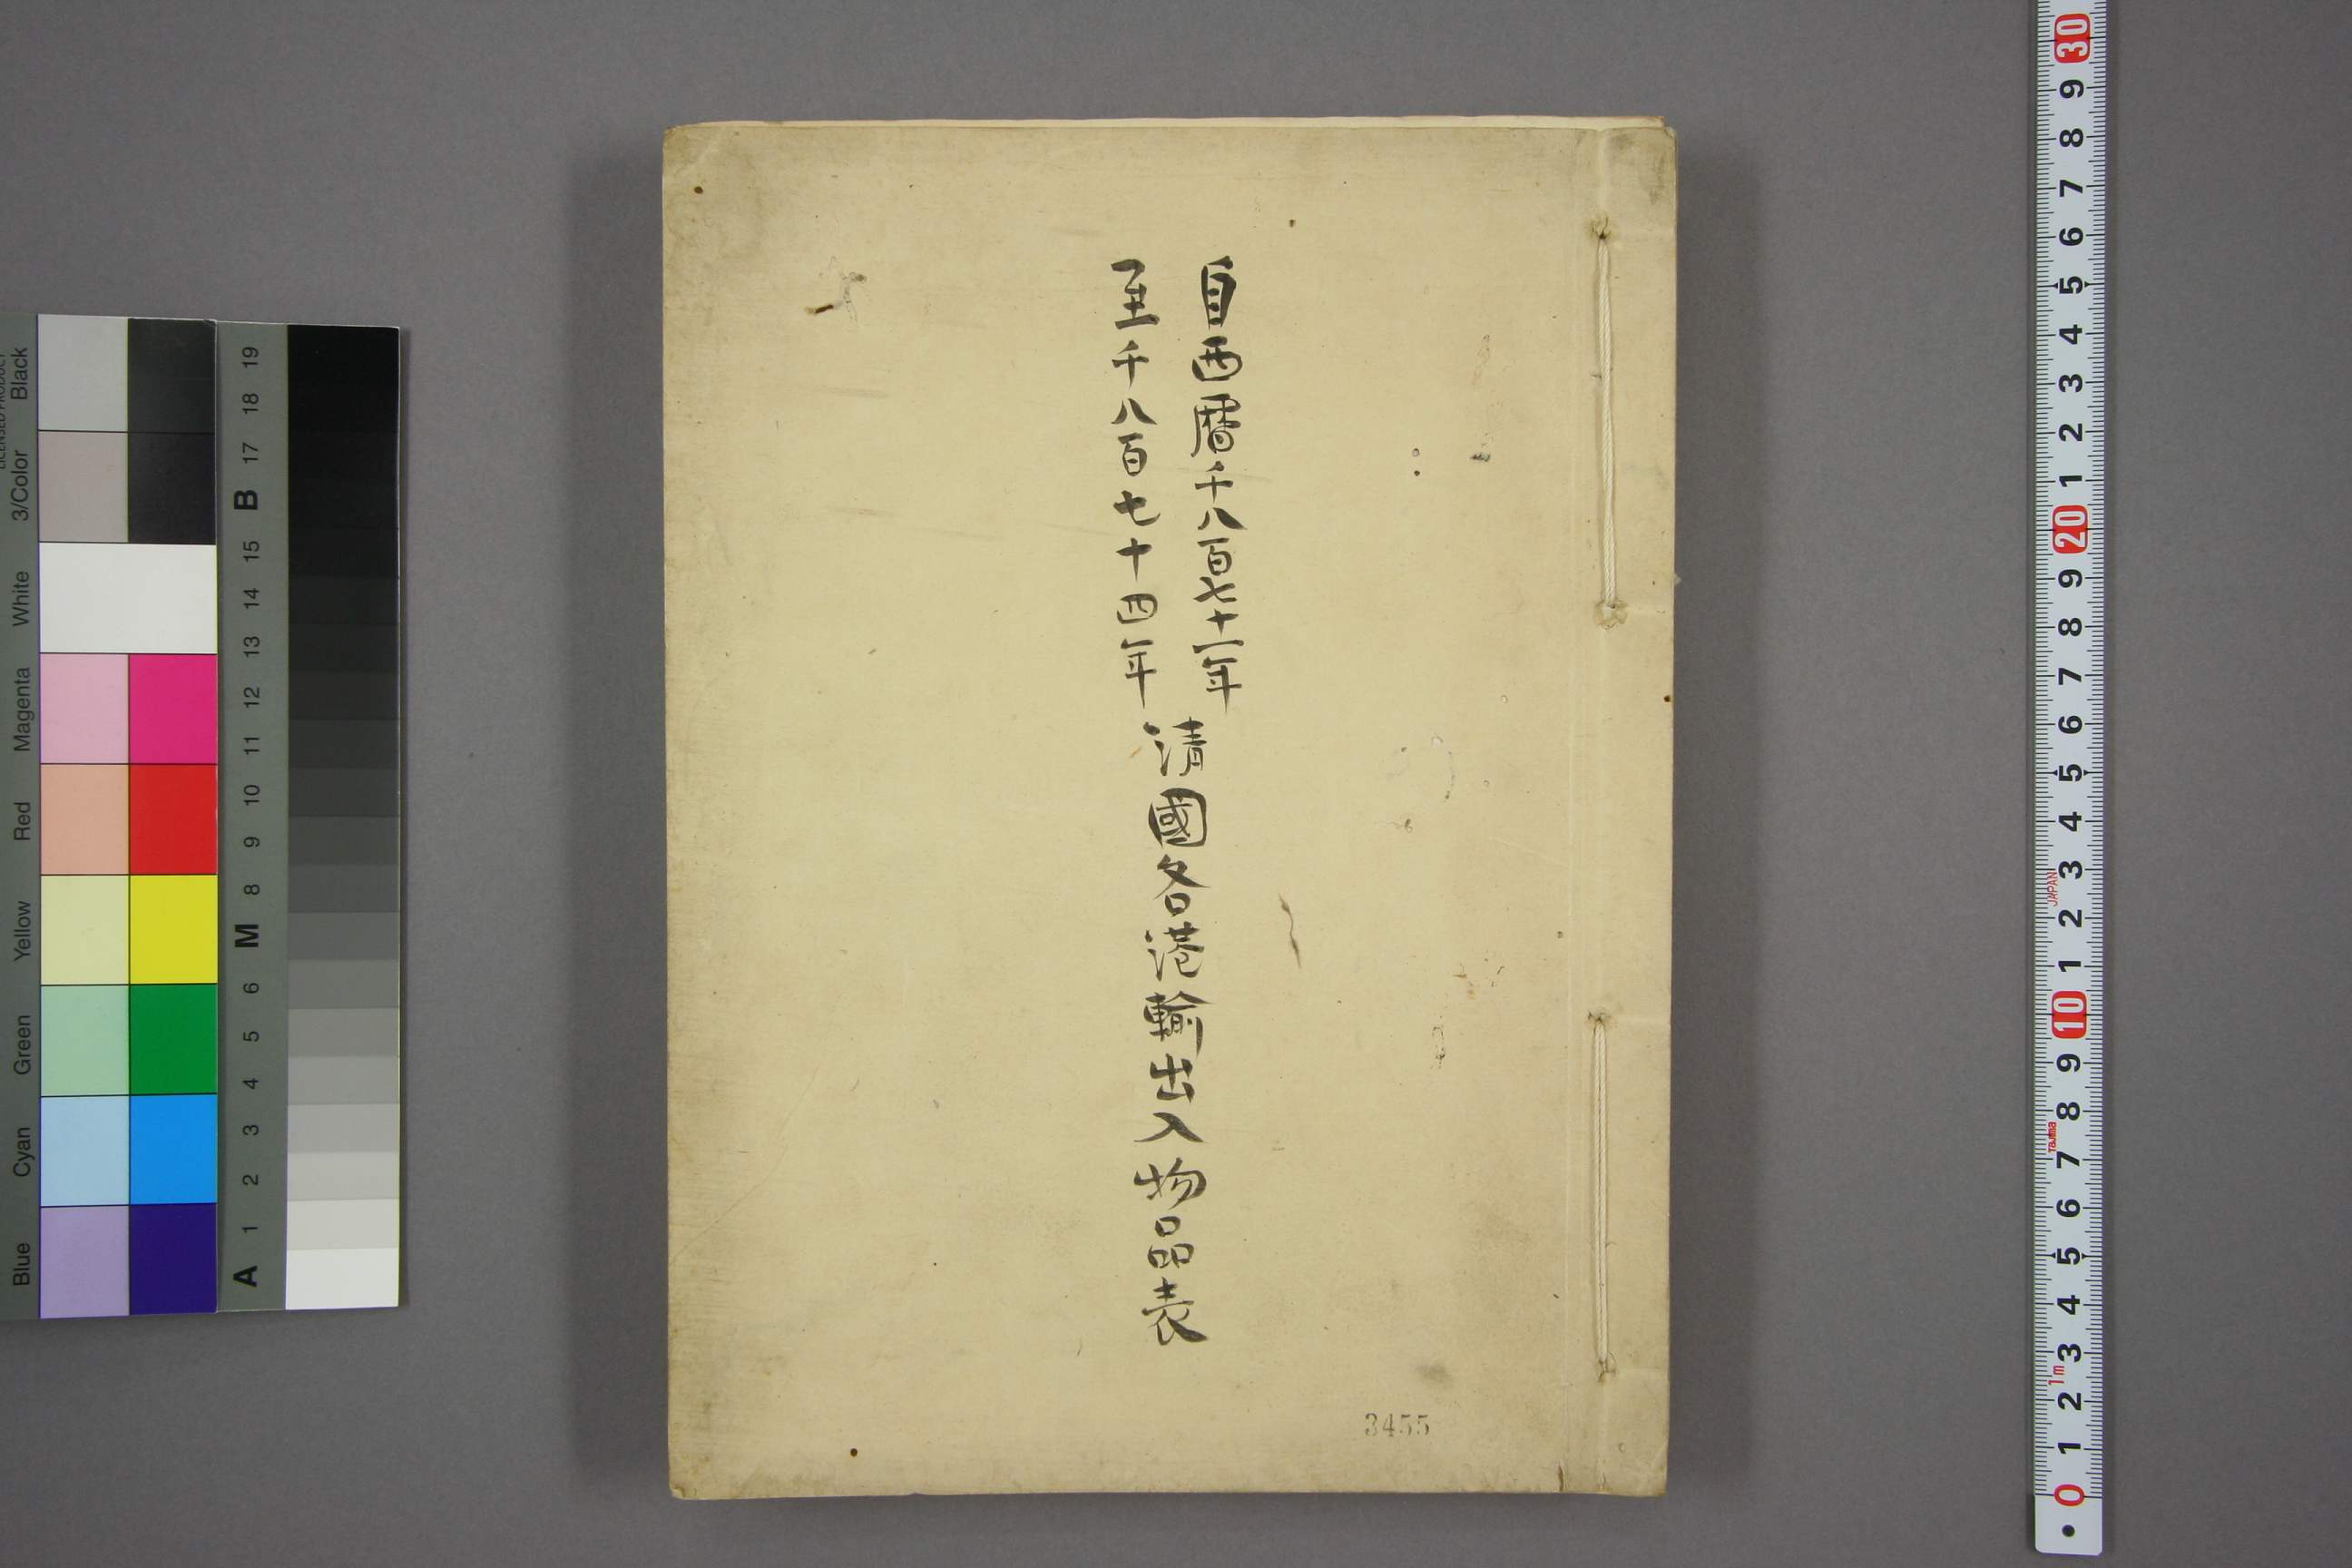 自西暦千八百七十一年
至千八百七十四年
清國各港輸出入物品表
3455
Black
3/Color
White
Magenta
Red
Yellow
Green
Cyan
Blue
19
18
17
B
15
14
13
12
11
10
9
8
M
6
5
4
3
2
1
A
30
9
8
7
6
5
4
3
2
1
20
9
8
7
6
5
4
3
JAPAN
2
1
10
9
8
Tajima
7
6
5
4
3
1m
2
1
0